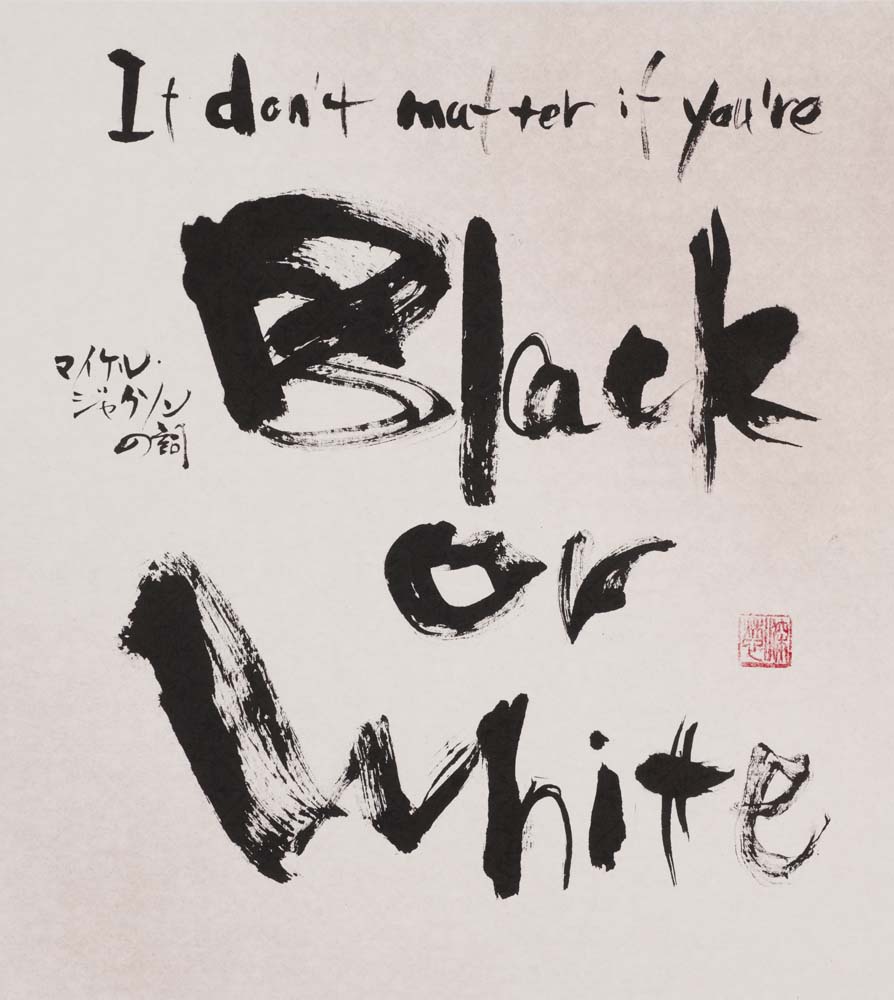 It don't matter if you're
Black
or
White
マイケル・
ジャクソン
の詞